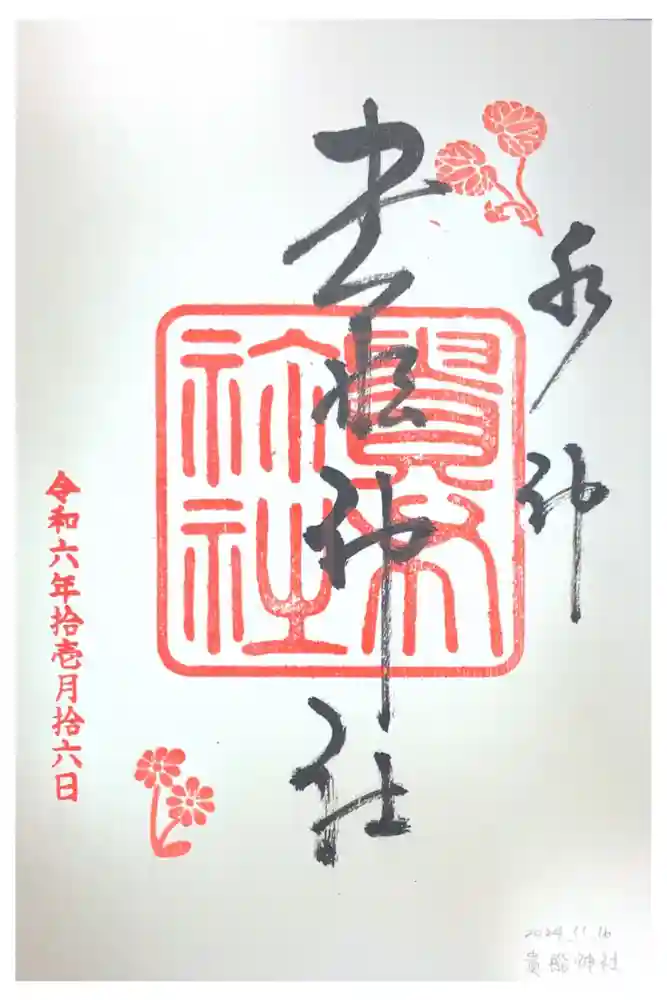 水神
貴船神社
貴布祢社
令和六年拾壱月拾六日
2024.11.16
貴船神社